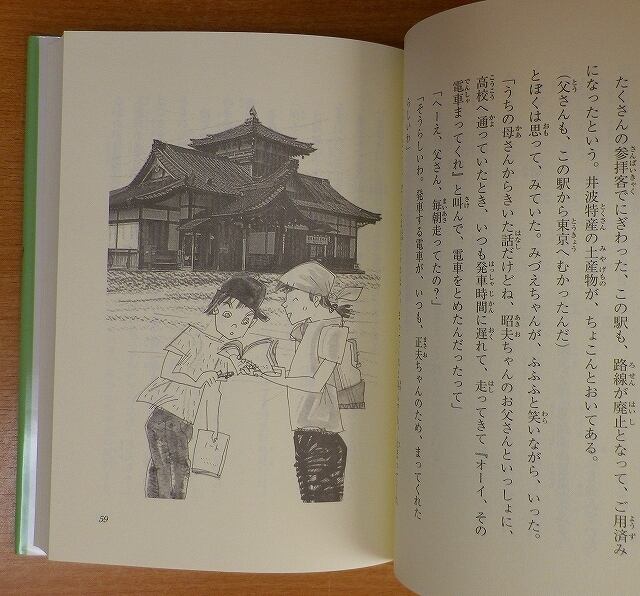 たくさんの参拝客でにぎわった、この駅も、路線が廃止となって、ご用済み
になったという。井波特産の土産物が、ちょこんとおいてある。
(父さんも、この駅から東京へむかったんだ)
とぼくは思って、みていた。みづえちゃんが、ふふふと笑いながら、いった。
「うちの母さんからきいた話だけどね、昭夫ちゃんのお父さんといっしょに、
高校へ通っていたとき、いつも発車時間に遅れて、走ってきて『オーイ、その
電車まってくれ』と叫んで、電車をとめたんだったって」
「へーえ、父さん、毎朝走ってたの?」
「そうらしいわ。発車する電車が、いつも、正夫ちゃんのため、まってくれた
らしいわ」
59